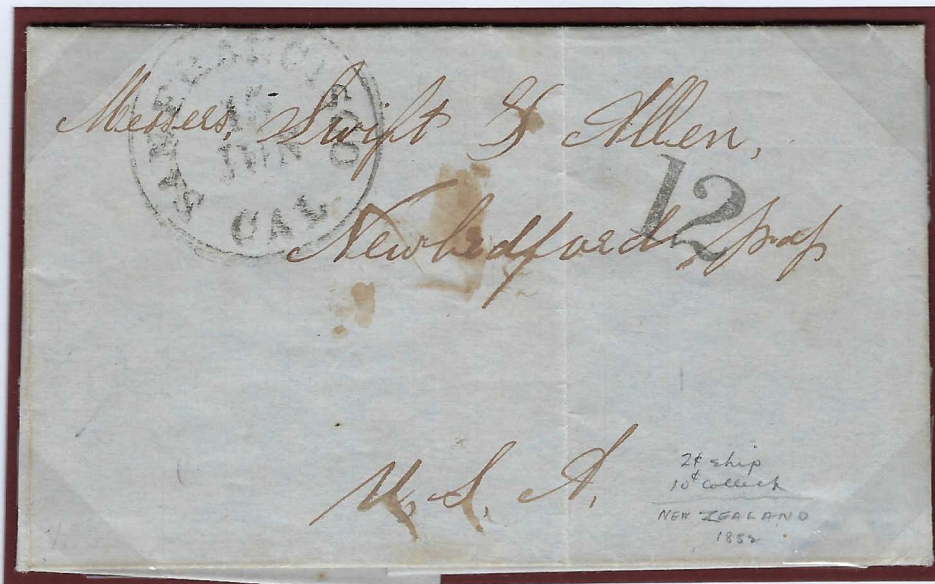 SAN FRANCISCO
15
JUN
CAL.
Messers, Swift & Allen,
12
Newbedford,
U. S. A.
2¢ ship
10¢ collect
NEW ZEALAND
1852